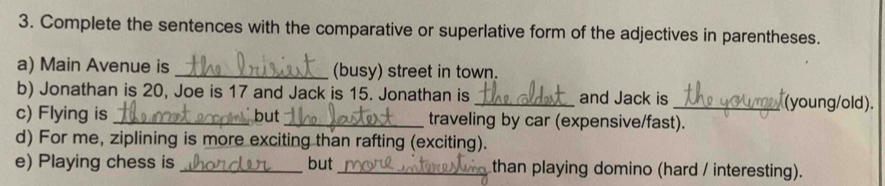 3. Complete the sentences with the comparative or superlative form of the adjectives in parentheses.
a) Main Avenue is the brisiest (busy) street in town.
b) Jonathan is 20, Joe is 17 and Jack is 15. Jonathan is the oldest and Jack is the youngest (young/old).
c) Flying is the most but the fastest traveling by car (expensive/fast).
d) For me, ziplining is more exciting than rafting (exciting).
e) Playing chess is harder but more interesting than playing domino (hard / interesting).